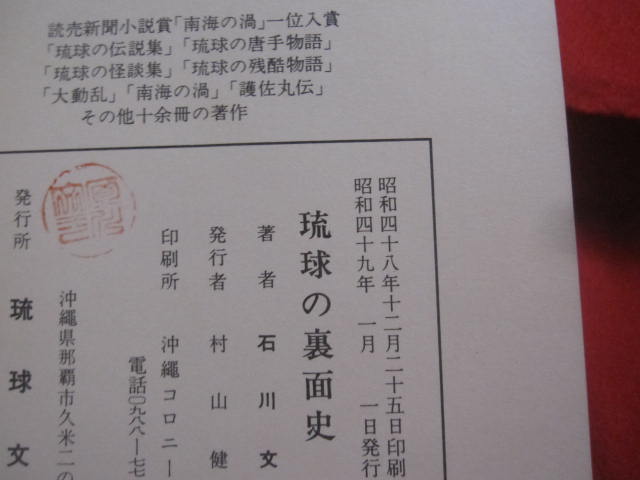 読売新聞小説賞「南海の渦」一位入賞
「琉球の伝説集」「琉球の唐手物語」
「琉球の怪談集」「琉球の残酷物語」
「大動乱」「南海の渦」「護佐丸伝」
その他十余冊の著作
昭和四十八年十二月二十五日印刷
昭和四十九年 一月 一日発行
琉球の裏面史
著者 石川文
発行者 村山健
印刷所 沖縄コロニー
電話〇九八八―七七
沖繩県那覇市久米二の
発行所 琉球文